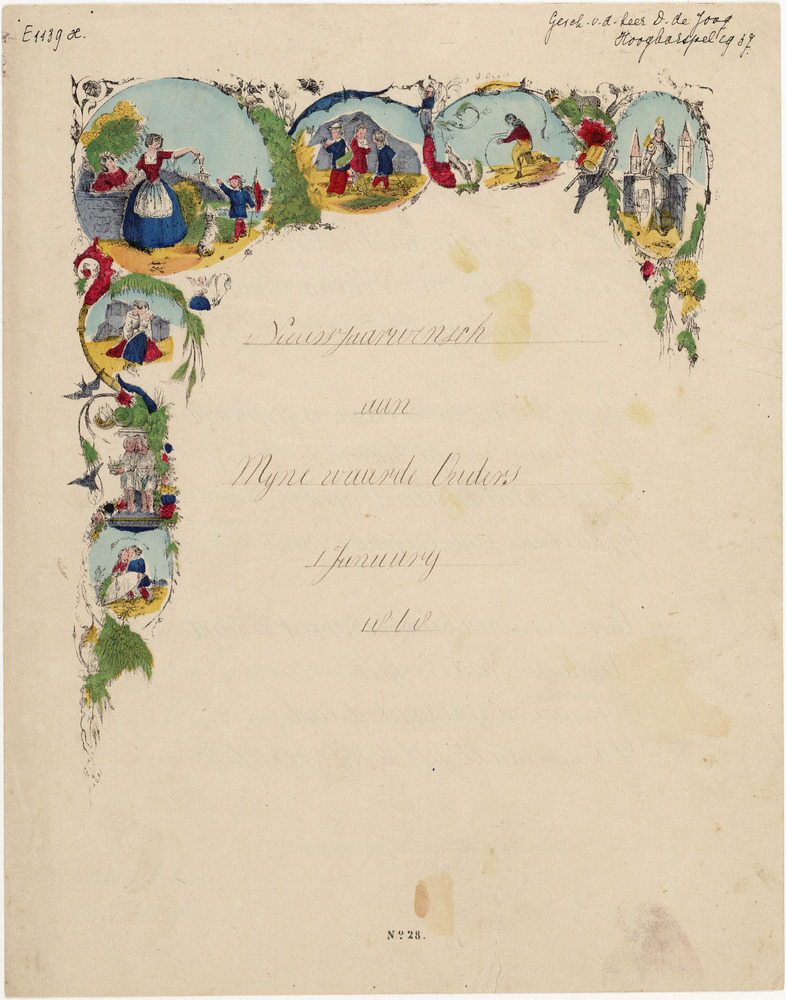 E 1139 æ.
Gesch. v. d. heer D. de Jong
Hoogkarspel
Nieuwjaarwensch
aan
Myne waarde Ouders
1 January
1868
Nº 28.